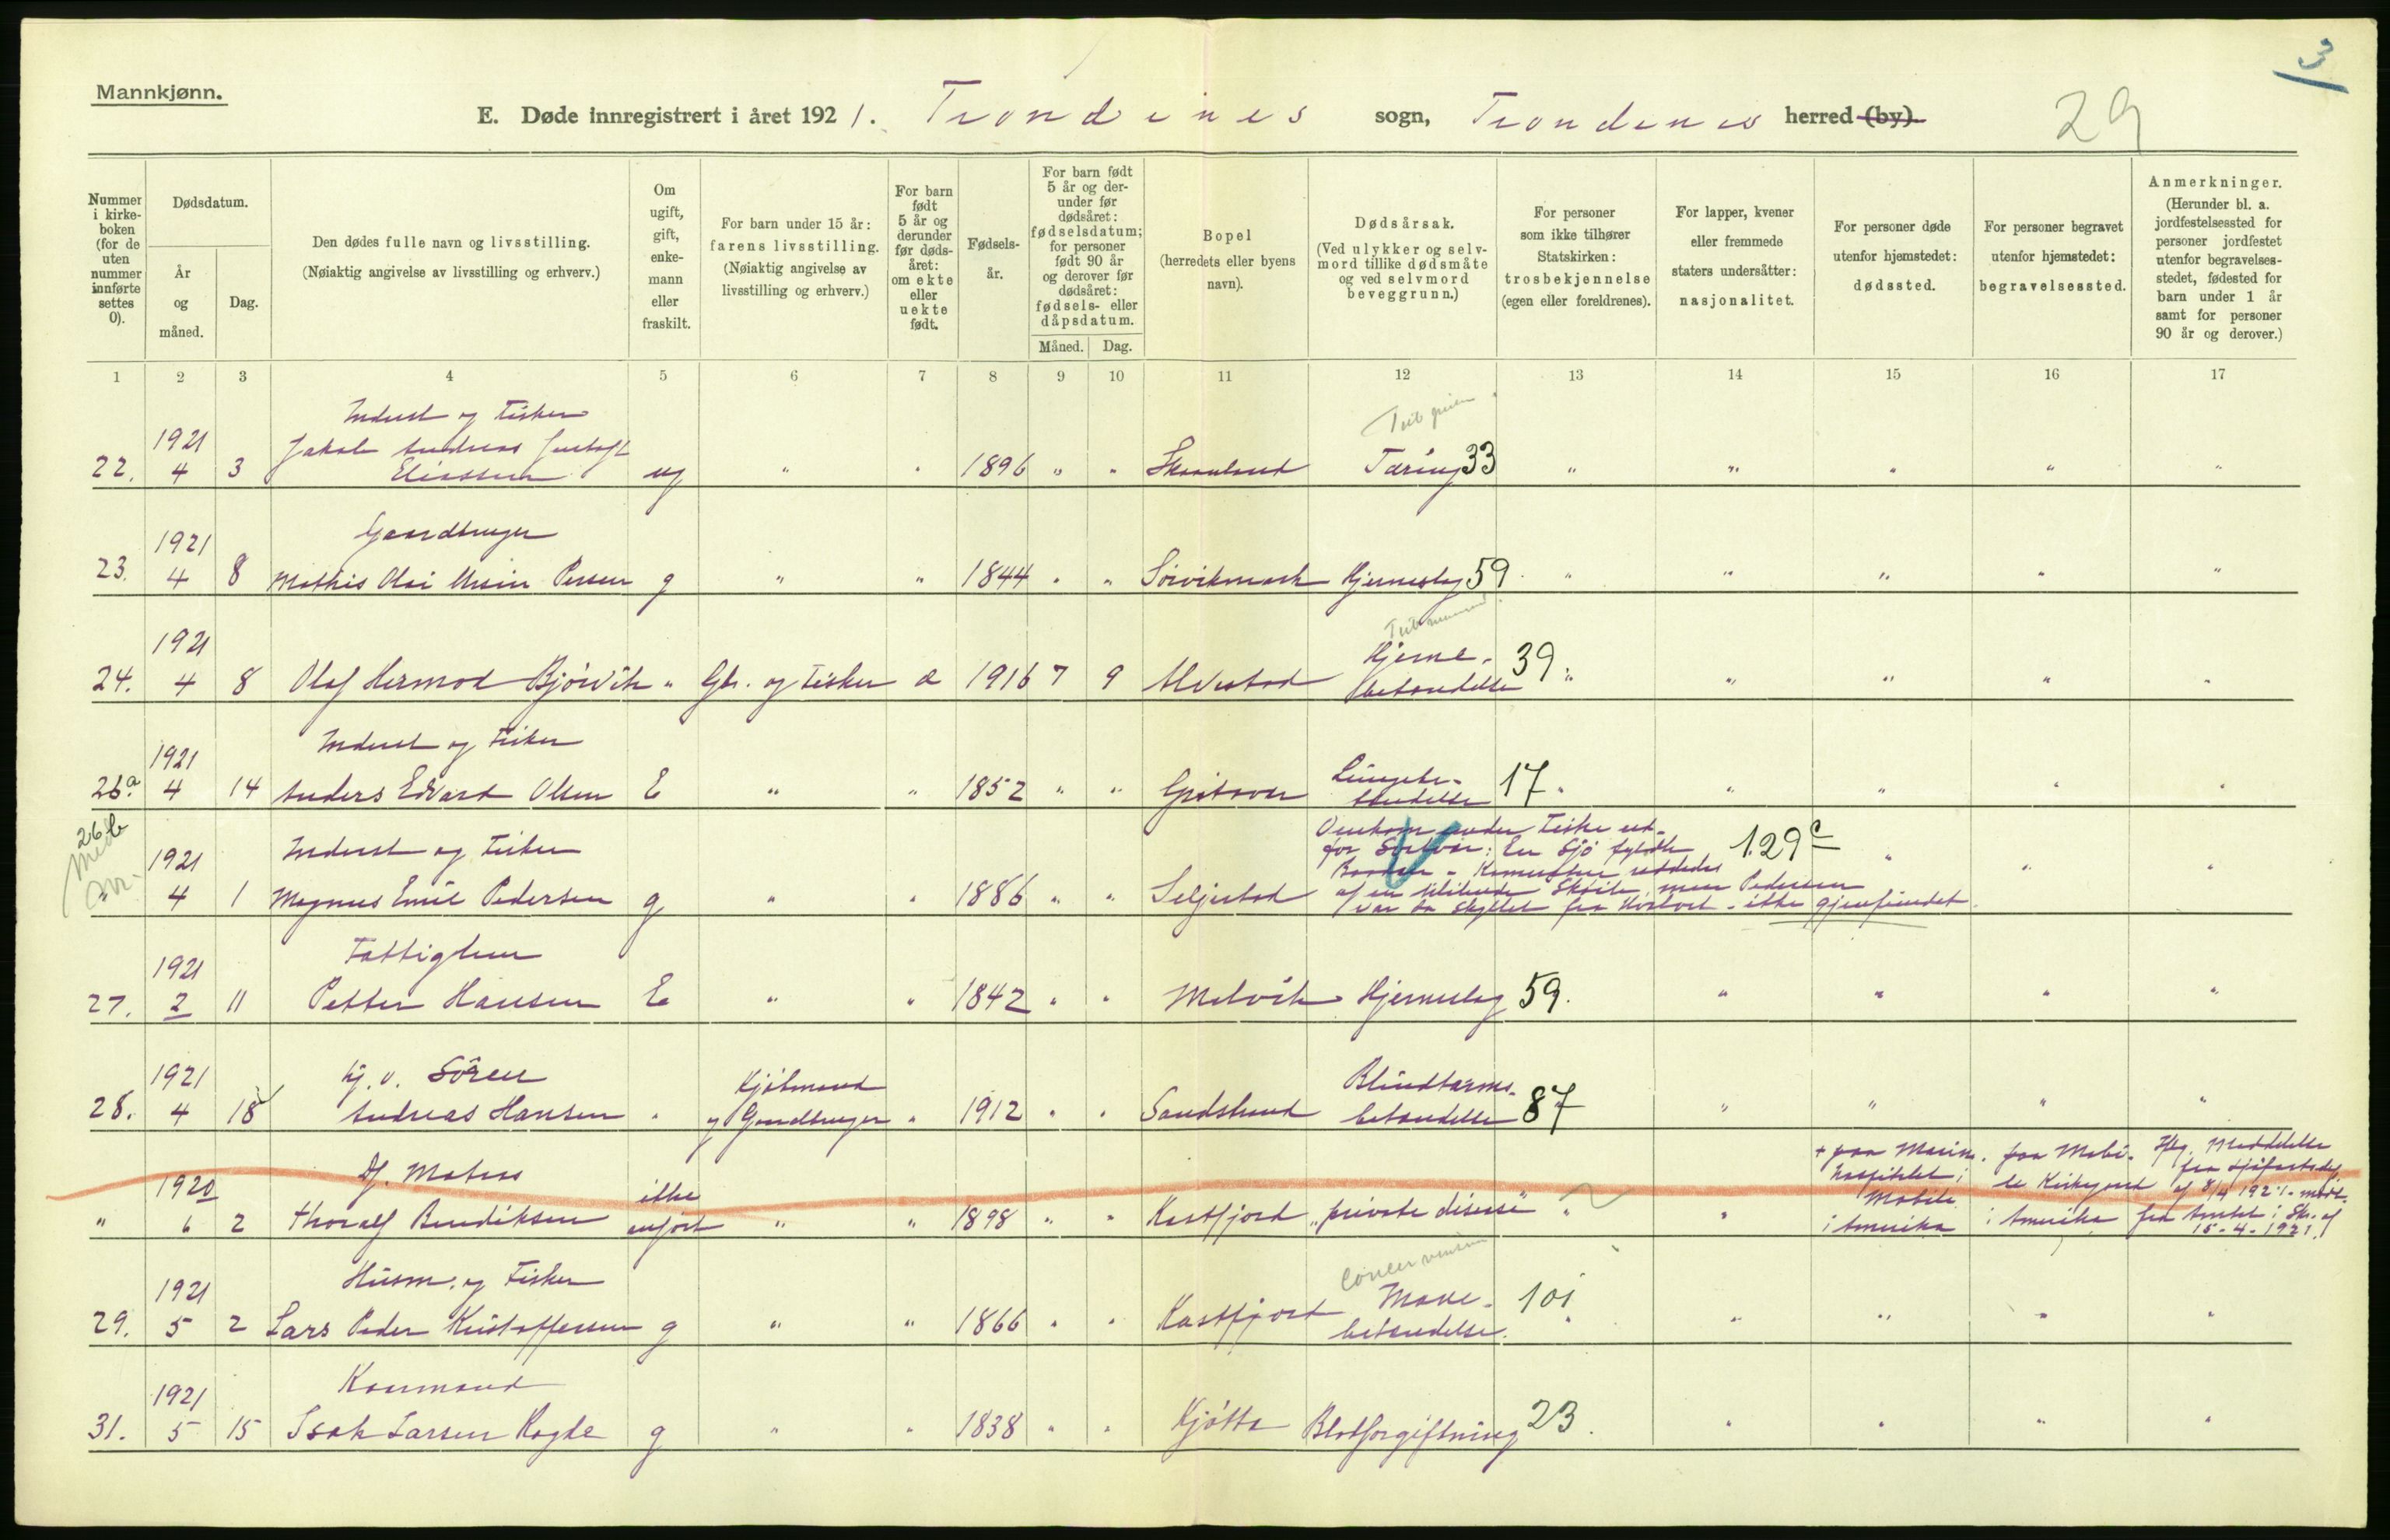 3
Mannkjønn.
E. Døde innregistrert i året 1921. Trondenes sogn, Trondenes herred (by).
29
Nummer i kirkeboken (for de uten nummer innførte settes 0).
Dødsdatum.
År og måned.
Dag.
Den dødes fulle navn og livsstilling.
(Nøiaktig angivelse av livsstilling og erhverv.)
Om ugift, gift, enkemann eller fraskilt.
For barn under 15 år: farens livsstilling.
(Nøiaktig angivelse av livsstilling og erhverv.)
For barn født 5 år og derunder før dødsåret: om ekte eller uekte født.
Fødselsår.
For barn født 5 år og derunder før dødsåret: fødselsdatum; for personer født 90 år og derover før dødsåret: fødsels- eller dåpsdatum.
Måned. Dag.
Bopel (herredets eller byens navn).
Dødsårsak.
(Ved ulykker og selvmord tillike dødsmåte og ved selvmord beveggrunn.)
For personer som ikke tilhører Statskirken: trosbekjennelse (egen eller foreldrenes).
For lapper, kvener eller fremmede staters undersåtter: nasjonalitet.
For personer døde utenfor hjemstedet: dødssted.
For personer begravet utenfor hjemstedet: begravelsessted.
Anmerkninger.
(Herunder bl. a. jordfestelsessted for personer jordfestet utenfor begravelsesstedet, fødested for barn under 1 år samt for personer 90 år og derover.)
1 2 3 4 5 6 7 8 9 10 11 12 13 14 15 16 17
Inderst og Fisker
1921 Jakob Andreas
22. 4 3 Eliassen ug " " 1896 " " Skaanland Tæring 33 " " " " "
Gaardbruger
1921
23. 4 8 Mathis Olai Persen g " " 1844 " " Sørvikmark Hjerneslag 59 " " " " "
1921 Hjerne-
24. 4 8 Olaf Hermod Bjørvik " Gbr. og Fisker 1916 7 9 Alvestad betændelse 39 " " " " "
Inderst og Fisker
1921 Lungebe-
26a. 4 14 Anders Edvard Olsen E " " 1852 " " Grøtavær tændelse 17 " " " " "
26b
Inderst og Fisker
1921 Omkom under Fiske ud-
for Sørvær: En Sjø fyldte 129c
Baaden - Kameratene reddedes
" 4 1 Magnus Emil Pedersen g " " 1886 " " Seljestad af en tililende Skøite, men Pedersen
var da skyllet fra Hvalvet - ikke gjenfundet
Fattiglem
1921
27. 2 11 Petter Hansen E " " 1842 " " Melvik Hjerneslag 59. " " " "
Søren Kjøbmand
1921 Blindtarms-
28. 4 18 Andreas Hansen " og Gaardbruger " 1912 " " Sandstrand betændelse 87 " " " "
Matros
1920 ikke
" 6 2 Thoralf Bendiksen anført " " 1898 " " Kastfjord "private disease" " "
+ paa Marine-
hospitalet i
Mobile
i Amerika
paa Mobi-
le Kirkegaard
i Amerika
Meddelelse
fra Sjøfartsdir.
af 8/4 1921 - modt.
fra Amtet i Skr. af
15-4-1921.
Husm. og Fisker
1921 Mave-
29. 5 2 Lars Peder Kristoffersen g " " 1866 " " Kastfjord betændelse. 101 " " " " "
Kaarmand
1921
31. 5 15 Isak Larsen g " " 1838 " " Kjøtta Blodforgiftning 23. " " " "